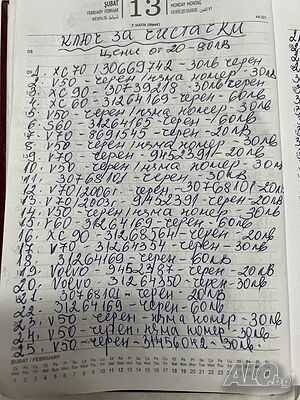 SUBAT
FEBRUARY FEBRUAR
13
MONDAY MONTAG
КЛЮЧ ЗА ЧИСТАЧКИ
Цени от 20-80лв
08
1. XC 70/30669742 - 30лв черен
2. V50 - черен/няма номер - 30лв
3. XC 90 - 30739218 - 30лв черен
4. XC 60 - 31264169 - черен - 60лв
5. V50 - черен/няма номер - 30лв
6. S60 - 31264169 - черен - 60лв
7. V60 - 8691545 - черен - 20лв
8. V50 - черен/няма номер - 30лв
9. V70 - черен - 9452391 - 20лв
10. V50 - черен/няма номер - 30лв
11. 30768101 - черен - 30лв
12. V70/2006г. - черен - 30768101 - 20лв
13. V70/2003г. - 9452391 - черен - 20лв
14. V50 - черен/няма номер - 30лв
15. V60 - 31264169 - черен - 60лв
16. XC 90 - 31268561 - черен - 20лв
17. V70 - 31264354 - черен - 30лв
18. 31264169 - черен - 60лв
19. Volvo - 9452387 - черен - 20лв
20. Volvo - 31264350 - черен - 30лв
21. 30768101 - черен - 20лв
22. 31264169 - черен - 60лв
23. V50 - черен - няма номер - 30лв
24. V50 - черен - няма номер - 30лв
25. V50 - черен - 31456042 - 30лв.
SUBAT / FEBRUARY
ALO.bg